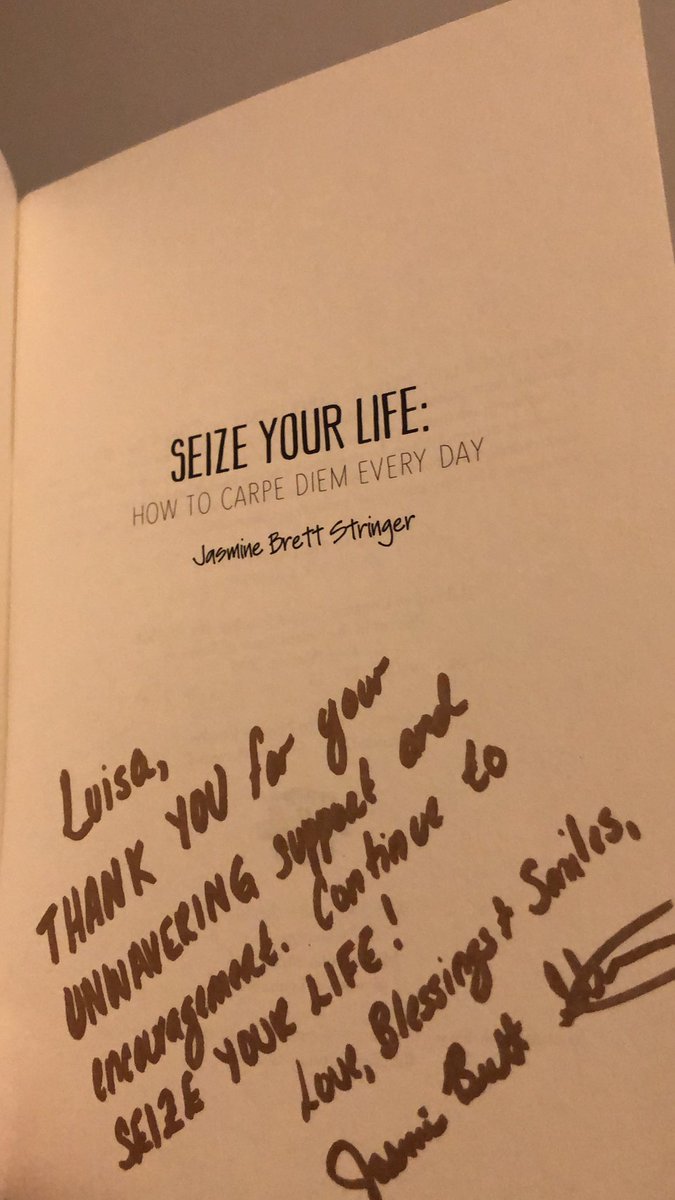 SEIZE YOUR LIFE:
HOW TO CARPE DIEM EVERY DAY
Jasmine Brett Stringer
Luisa,
THANK YOU for your
UNWAVERING support and
encouragement. Continue to
SEIZE YOUR LIFE!
Love, Blessings + Smiles,
Jasmine Brett